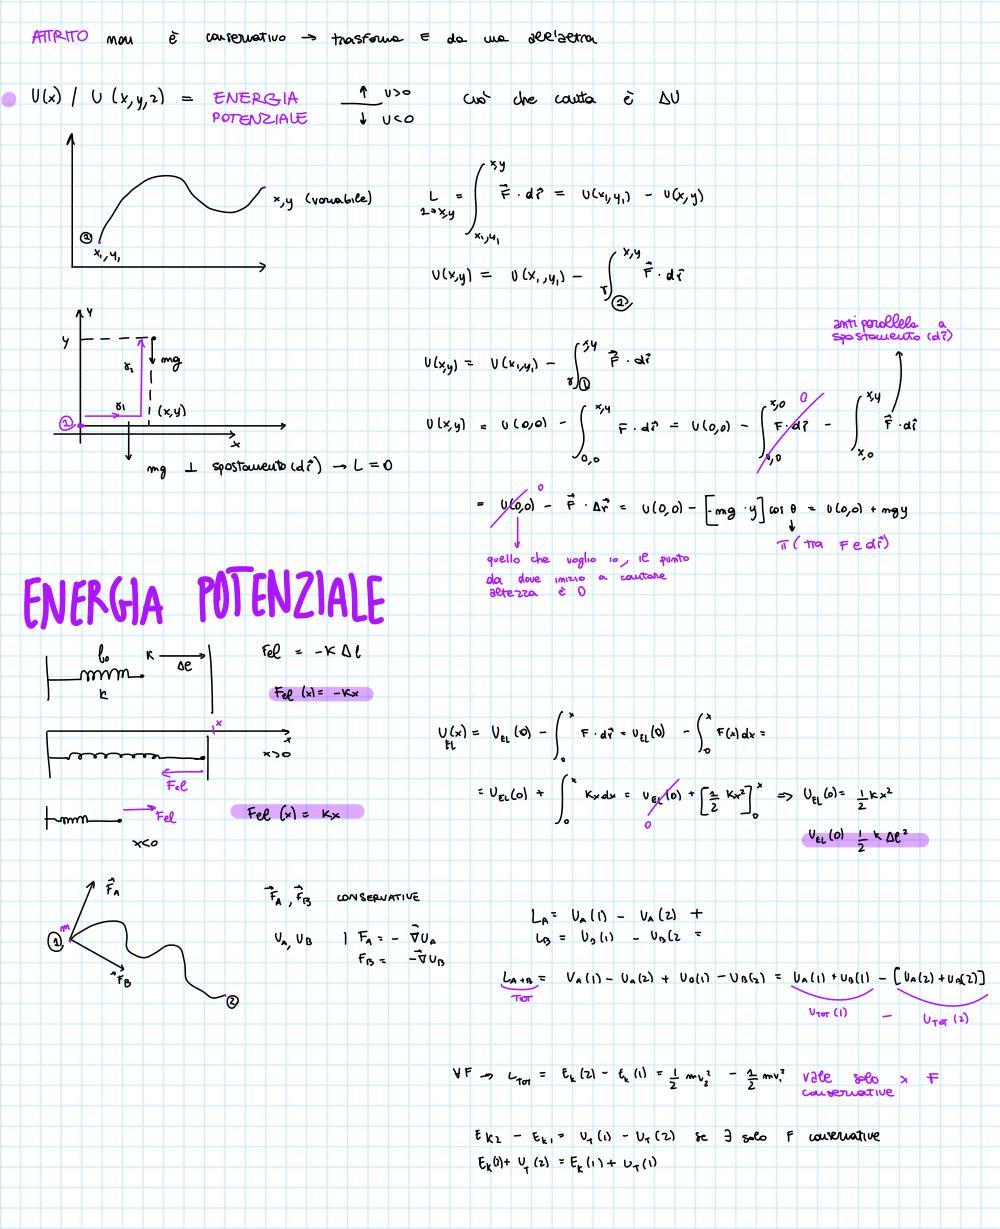 ATTRITO non è conservativo → trasforma E da una all'altra
U(x) / U(x,y,z) = ENERGIA POTENZIALE ↑ U>0 ↓ U<0 ciò che conta è ΔU
x,y (variabile)
① x₁,y₁
L 1→x,y = ∫ x₁,y₁ x,y F⃗·dr⃗ = U(x₁,y₁) - U(x,y)
U(x,y) = U(x₁,y₁) - ∫ γ① x,y F⃗·dr⃗
y
y
γ₂
mg
γ₁
(x,y)
①
x
mg ⊥ spostamento (dr⃗) → L = 0
antiparallela a
spostamento (dr⃗)
U(x,y) = U(x₁,y₁) - ∫ γ① x,y F⃗·dr⃗
U(x,y) = U(0,0) - ∫ 0,0 x,y F·dr⃗ = U(0,0) - ∫ 0,0 x,0 F·dr⃗ 0 - ∫ x,0 x,y F⃗·dr⃗
= U(0,0) 0 - F⃗·Δr⃗ = U(0,0) - [mg·y] cos θ = U(0,0) + mgy
π (tra F e dr⃗)
quello che voglio io, il punto
da dove inizio a contare
altezza è 0
ENERGIA POTENZIALE
l₀ K Δl
k
Fel = -K Δl
Fel (x) = -Kx
x
x
x>0
Fel
Fel
x<0
Fel (x) = Kx
U(x) EL = U_EL(0) - ∫ 0 x F·dr⃗ = U_EL(0) - ∫ 0 x F(x)dx =
= U_EL(0) + ∫ 0 x Kxdx = U_EL(0) 0 + [1/2 Kx²] 0 x ⇒ U_EL(0) = 1/2 kx²
U_EL(0) 1/2 k Δl²
F⃗_A
m
①
F⃗_B
②
F⃗_A, F⃗_B CONSERVATIVE
U_A, U_B | F_A = - ∇⃗U_A
F_B = -∇⃗U_B
L_A = U_A(1) - U_A(2) +
L_B = U_B(1) - U_B(2 =
L_A+B = U_A(1) - U_A(2) + U_B(1) - U_B(2) = U_A(1) + U_B(1) - [U_A(2) + U_B(2)]
TOT
U_TOT(1) - U_TOT(2)
∀F → L_TOT = E_k(2) - E_k(1) = 1/2 mv₂² - 1/2 mv₁² vale solo x F
conservative
E_K2 - E_K1 = U_T(1) - U_T(2) se ∃ solo F conservative
E_K(2) + U_T(2) = E_K(1) + U_T(1)